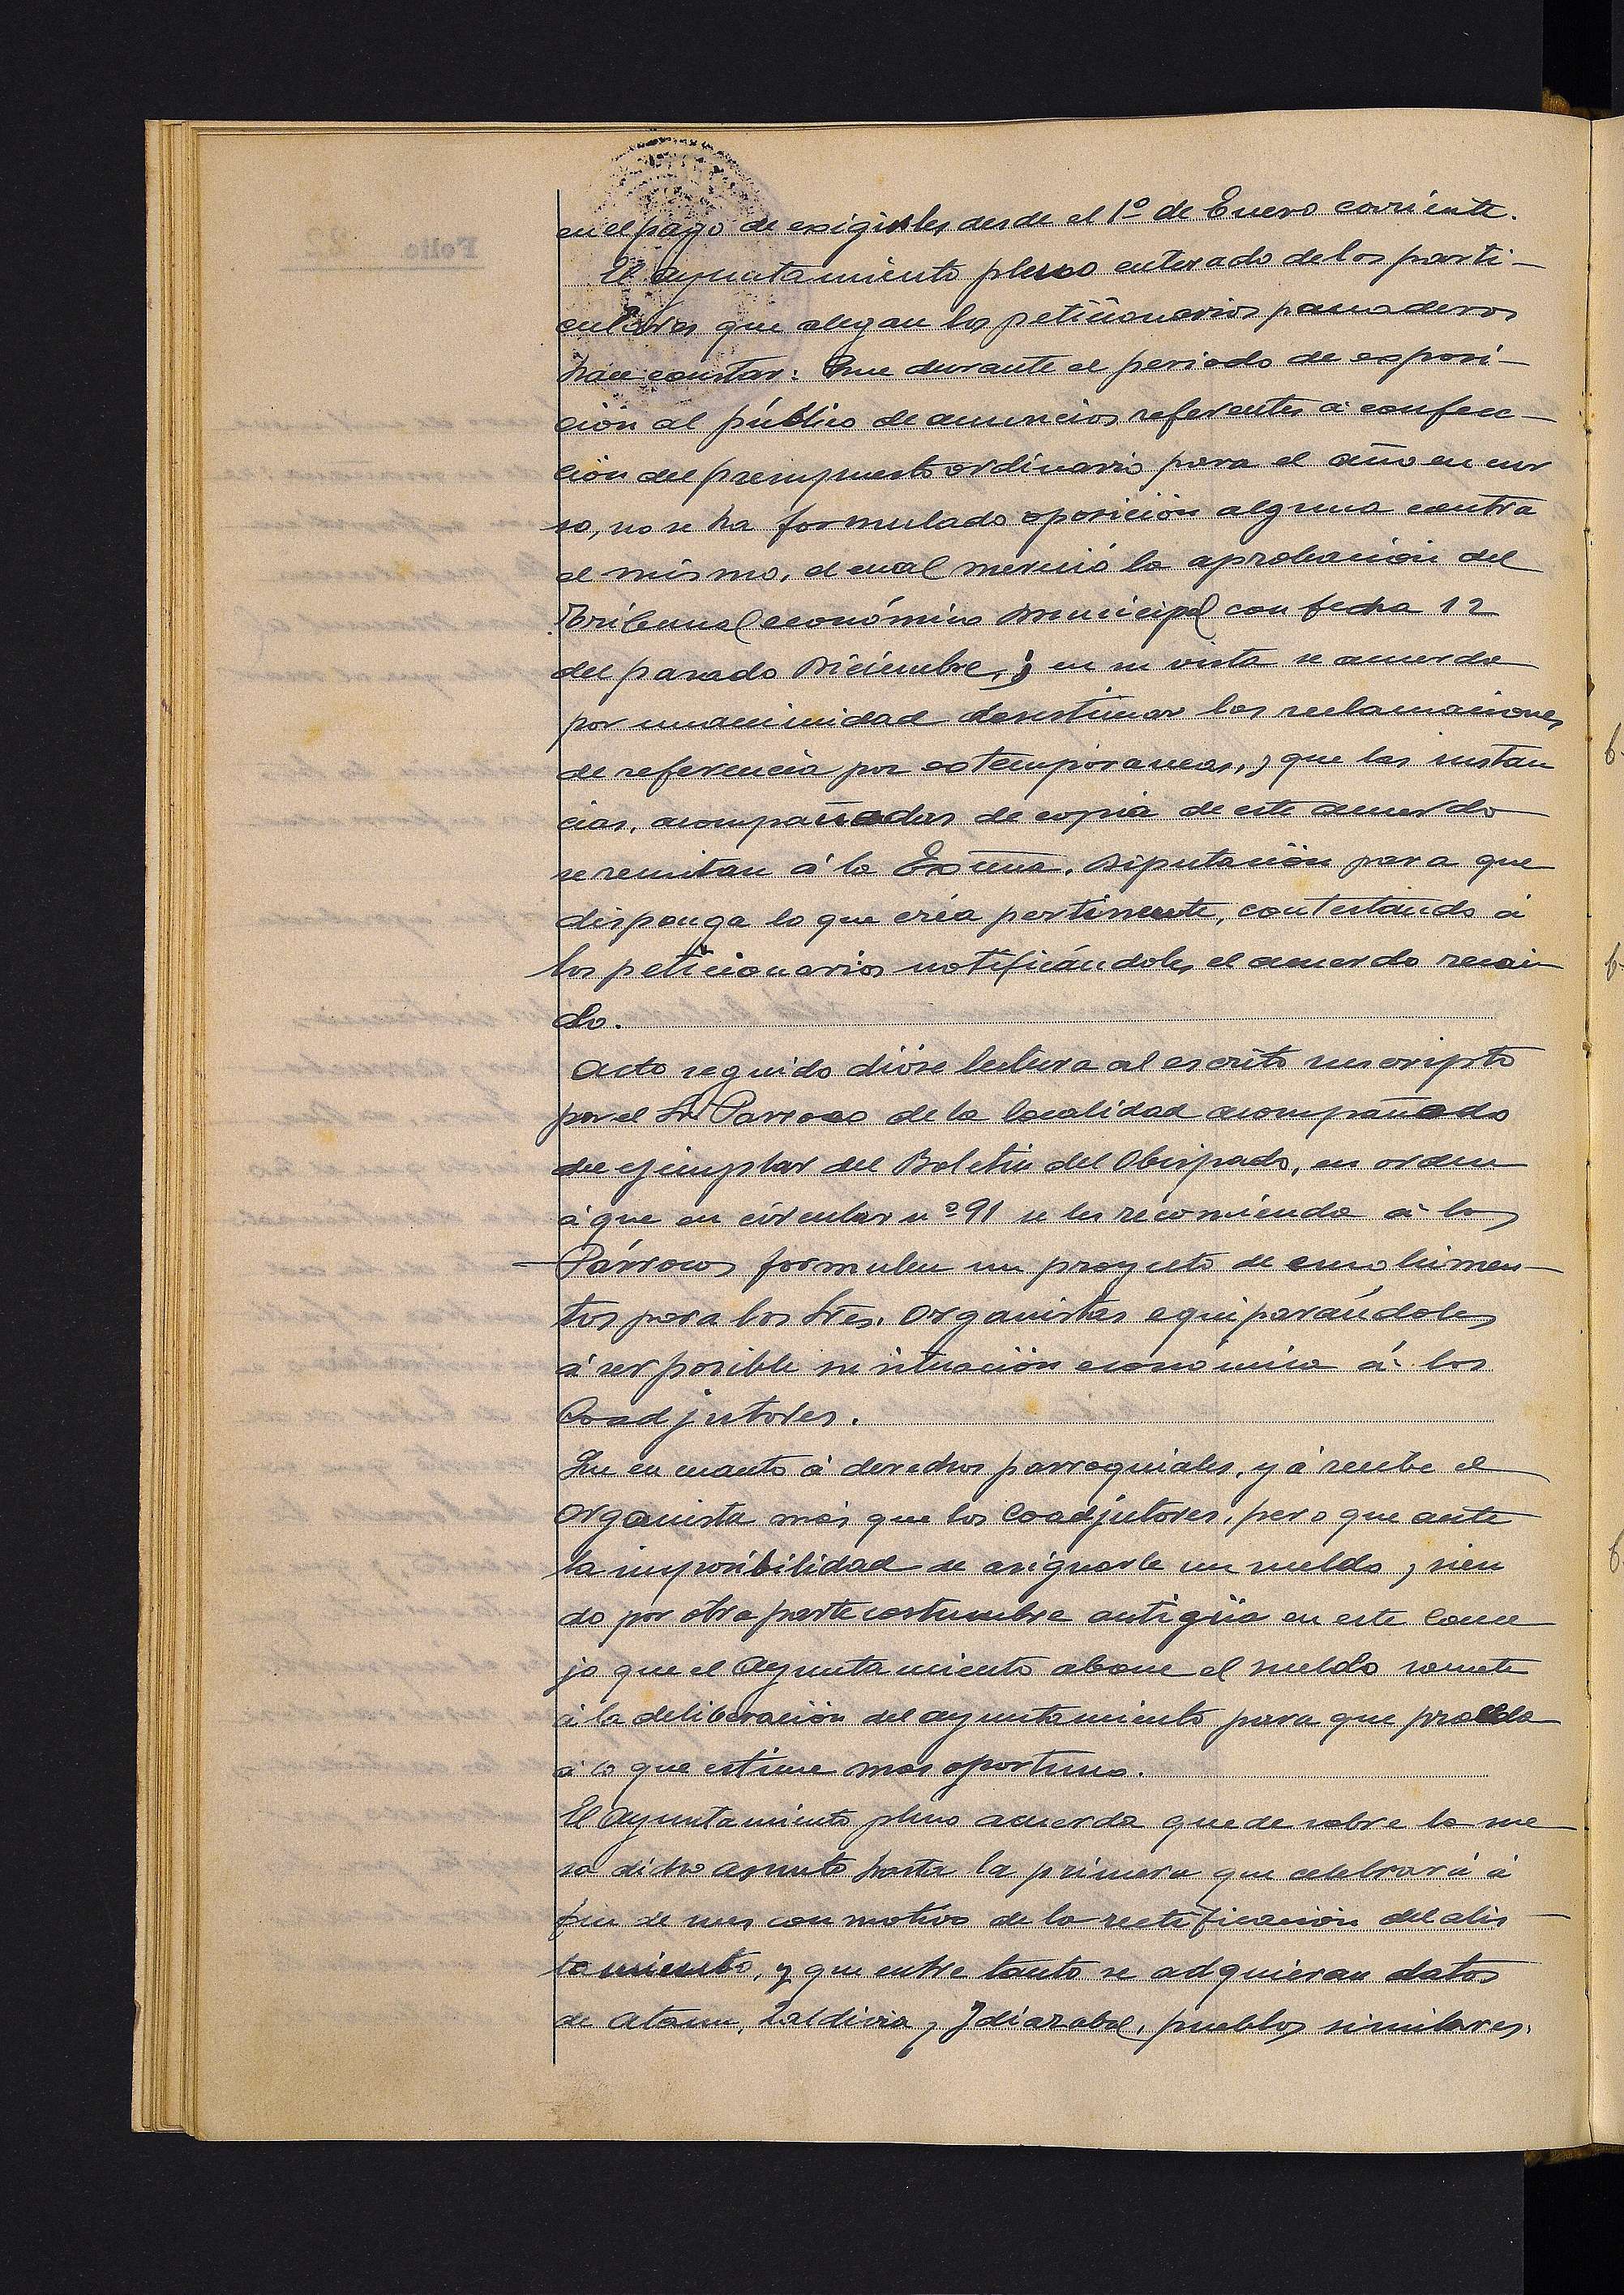 en el pago de exigirles desde el 1º de Enero corriente.
El ayuntamiento pleno enterado de los parti-
culares que alegan los peticionarios panaderos
hace constar: Que durante el periodo de exposi-
ción al público de anuncios referentes á confec-
ción del presupuesto ordinario para el año en cur
so, no se ha formulado oposición alguna contra
el mismo, el cual mereció la aprobación del
Tribunal económico municipal con fecha 12
del pasado Diciembre, y en su vista se acuerda
por unanimidad desestimar las reclamaciones
de referencia por extemporaneas, y que las instan
cias, acompañadas de copia de este acuerdo
se remitan á la Excma. Diputación para que
disponga lo que créa pertinente, contestando á
los peticionarios notificándoles el acuerdo recai
do.
Acto seguido dióse lectura al escrito suscripto
por el Sr. Parroco de la localidad acompañado
del ejemplar del Boletin del Obispado, en orden
á que en circular nº 91 se les recomienda á los
Párrocos formulen un proyecto de emolumen-
tos para los Sres. Organistas equiparándoles
á ser posible su situación económica á los
Coadjutores.
Que en cuanto á derechos parroquiales, yá recibe el
Organista más que los Coadjutores, pero que ante
la imposibilidad de asignarle un sueldo, y sien
do por otra parte costumbre antigüa en este Conce
jo que el Ayuntamiento abone el sueldo somete
á la deliberación del ayuntamiento para que proceda
á lo que estime mas oportuno.
El Ayuntamiento pleno acuerda quede sobre la me
sa dicho asunto hasta la primera que celebrará á
fin de mes con motivo de la rectificación del alis-
tamiento, y que entre tanto se adquieran datos
de Ataun, Zaldivia y Idiazabal, pueblos similares.